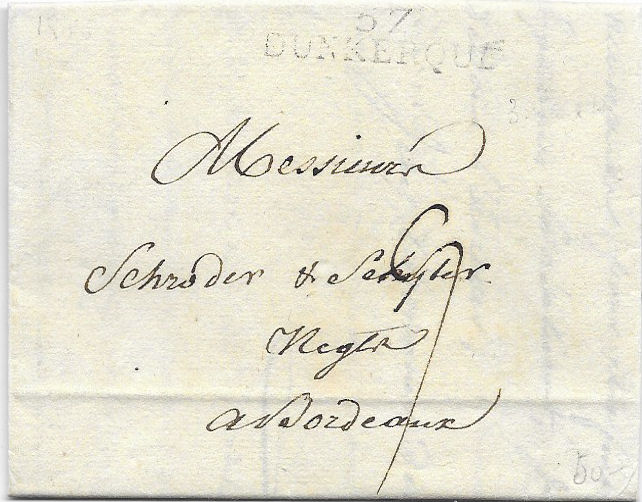 57
DUNKERQUE
Messieurs
Schroder & Schyler
Negts
a Bordeaux
50